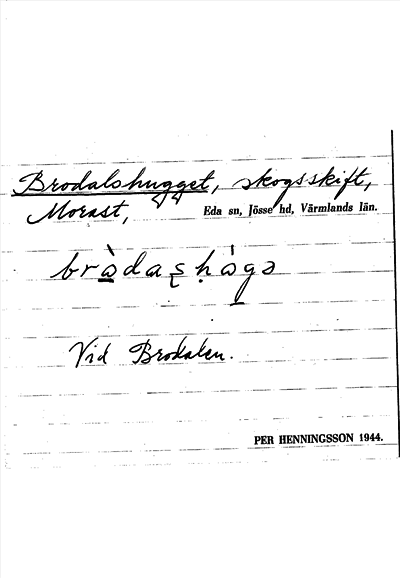 Brodalshugget, skogsskift,
Morast, Eda sn, Jösse hd, Värmlands län.
Vid Brodalen.
PER HENNINGSSON 1944.